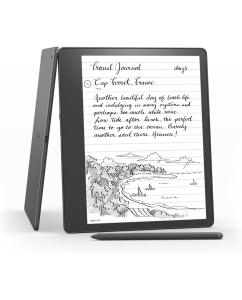 Travel Journal day 3
Cap Ferret, France.
Another beautiful day of beach life
and indulging in many oysters and
perhaps too much white wine.
Low tide after lunch, the perfect
time to go to the ocean. Barely
another soul there. Heaven!